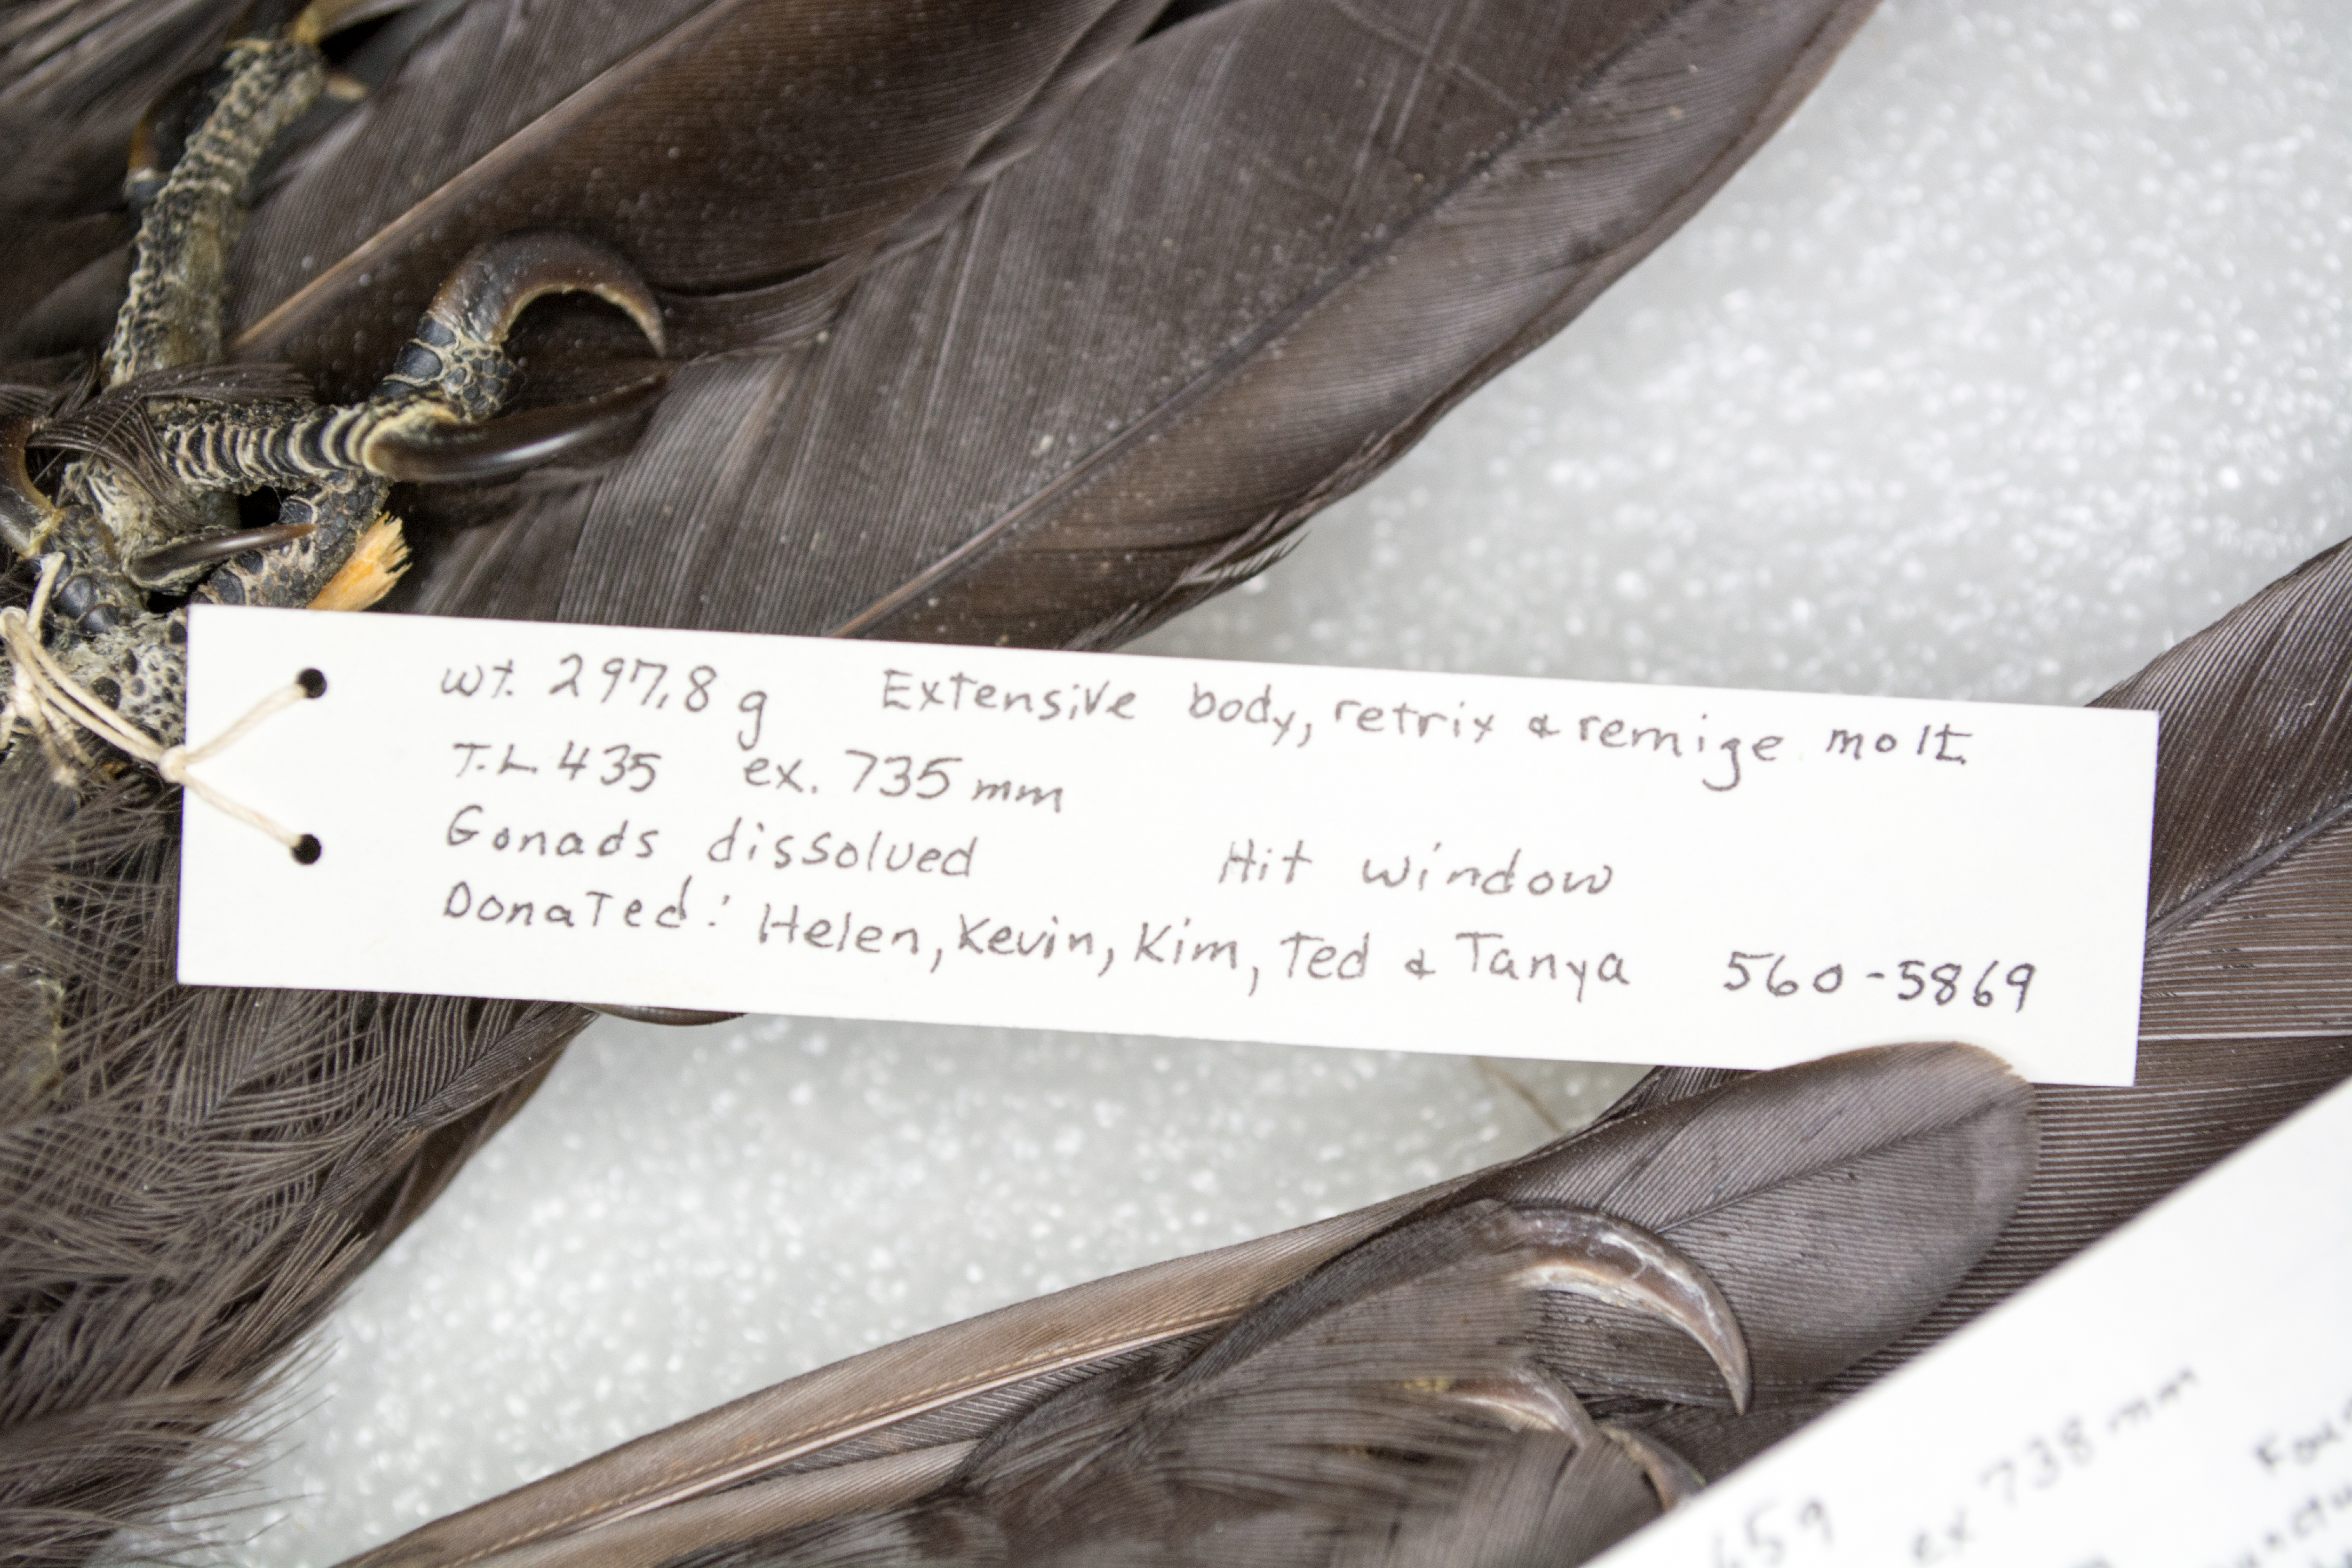 wt. 297.8 g Extensive body, retrix & remige molt.
T.L 435 ex. 735 mm
Gonads dissolved Hit window
Donated: Helen, Kevin, Kim, Ted & Tanya 560-5869
ex 738 mm